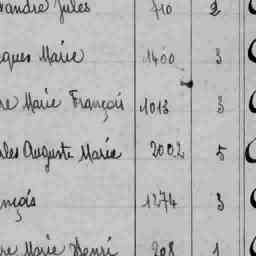 andre Jules 710 2
ques Marie 1400 3
re Marie François 1013 3
les Auguste Marie 2002 5
nçois 1274 3
re Marie Henri 208 1